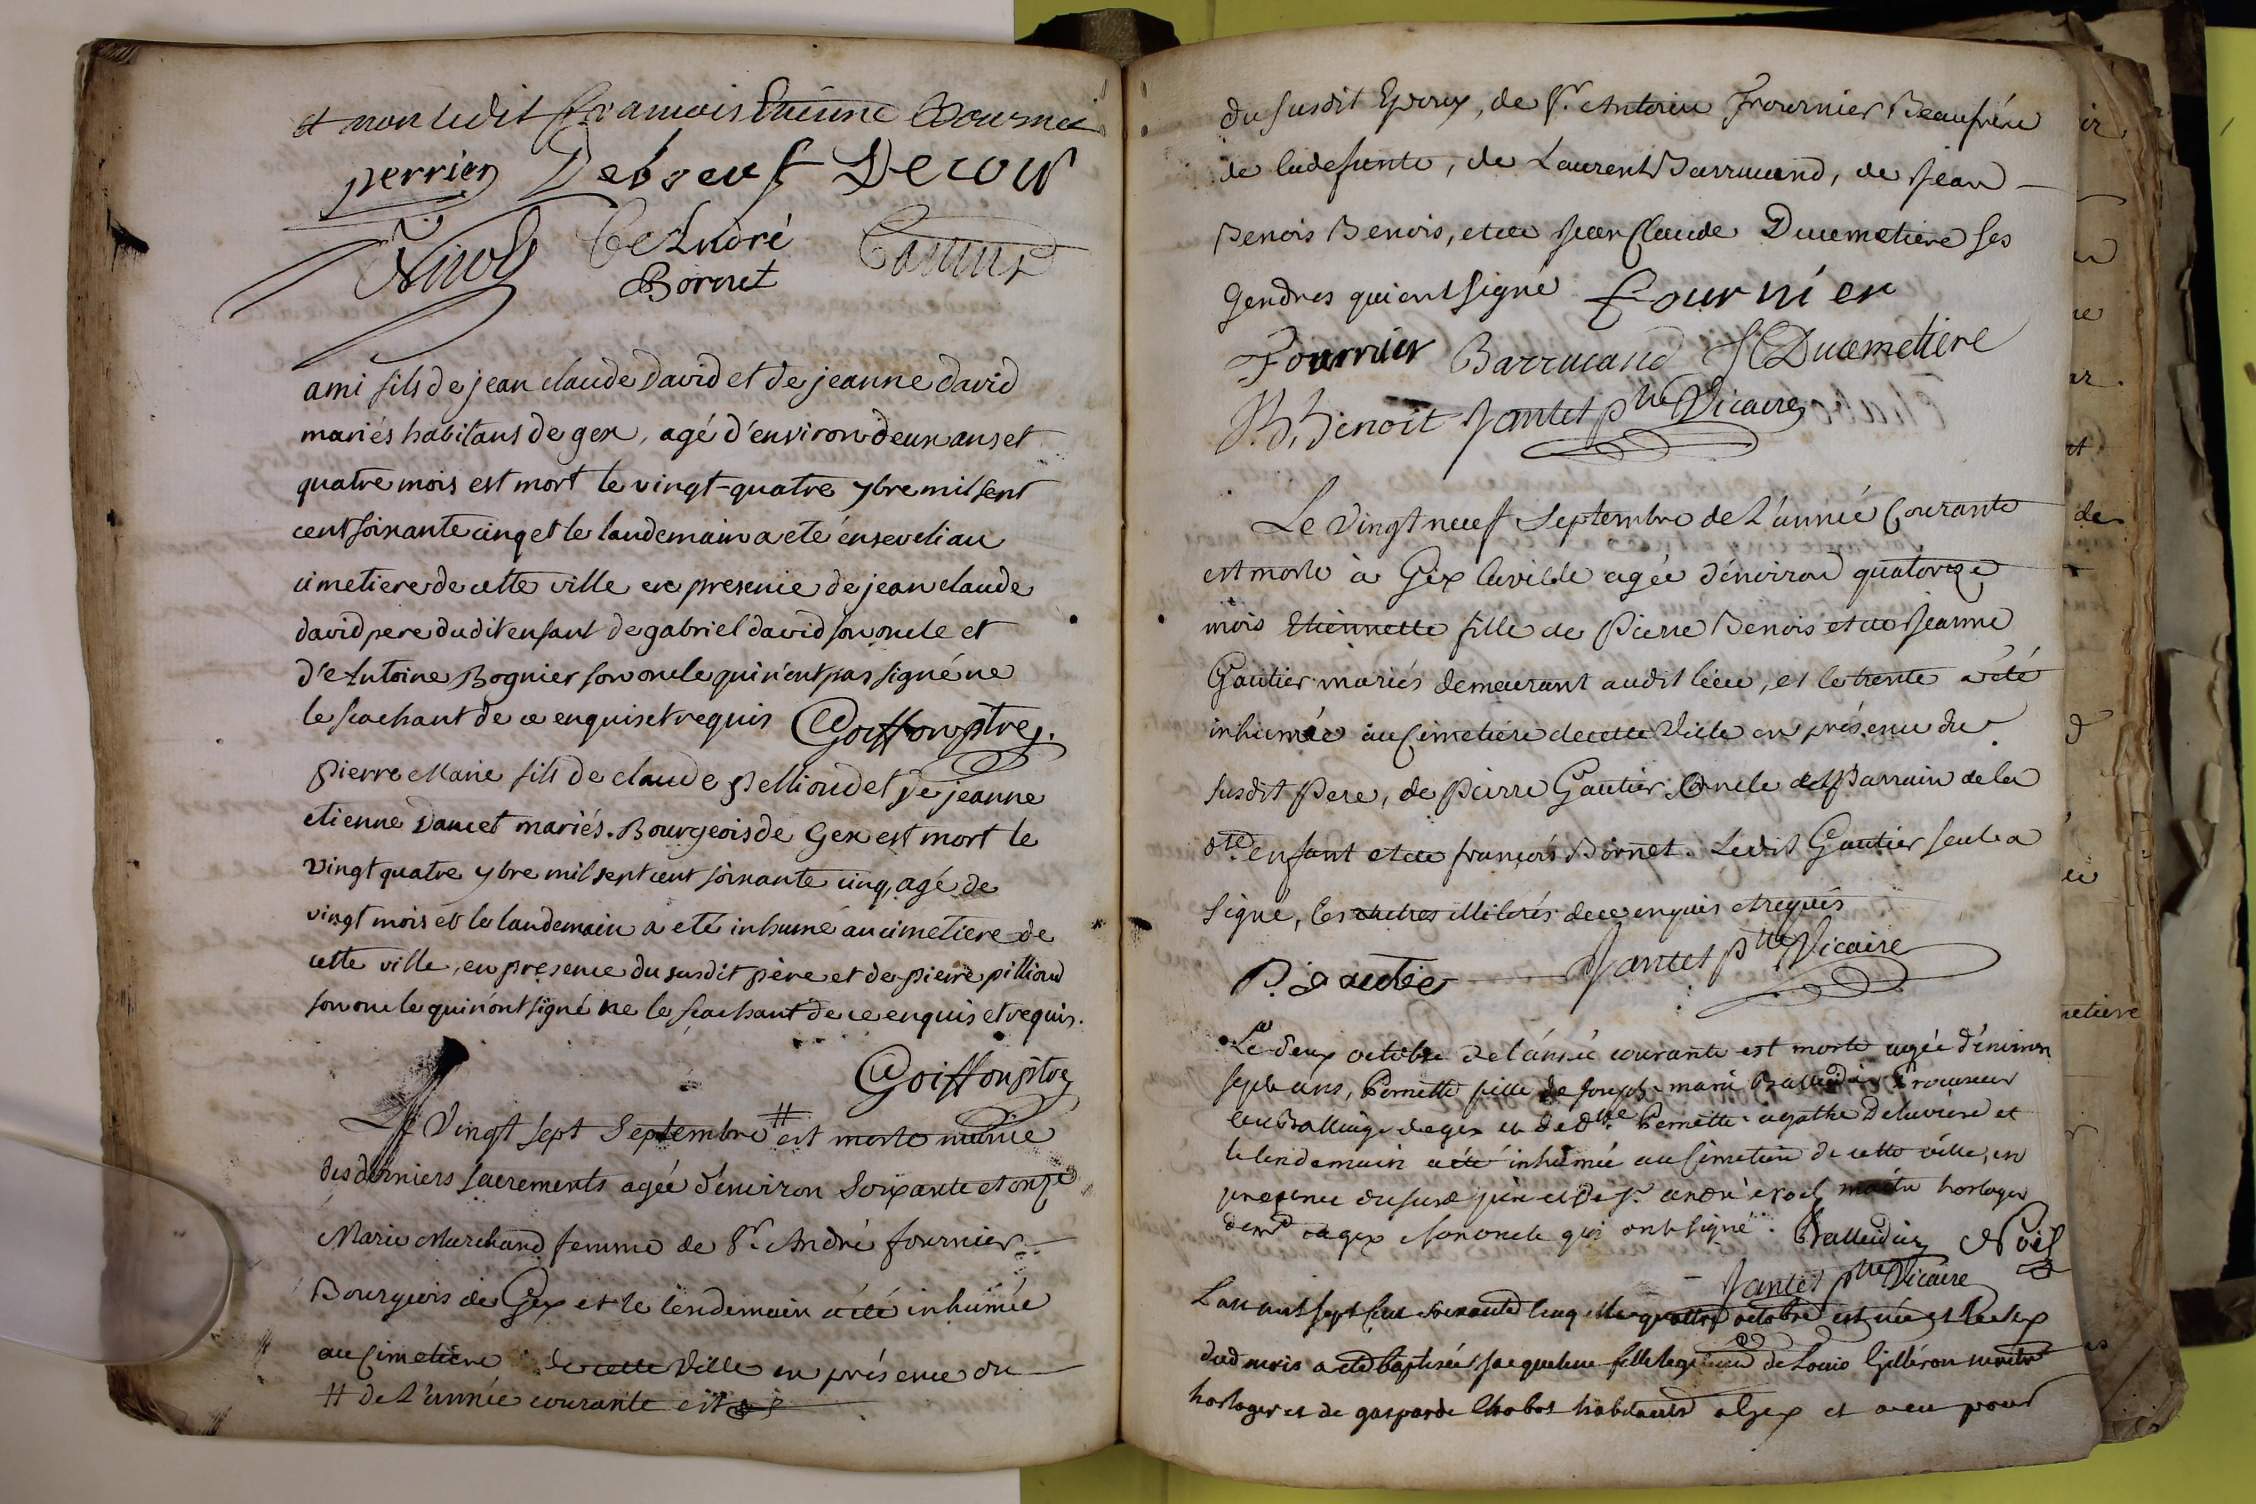 et non ledit françois Etienne Bournet
perrier Deboeuf Decour
Nicod C André Camus
Bornet
ami fils de jean claude David et de jeanne david
mariés habitans de gex, agé d'environ deux ans et
quatre mois est mort le vingt-quatre 7bre mil sept
cent soixante cinq et le landemain a eté énseveli au
cimetiere de cette ville en presence de jean claude
david pere dudit enfant de gabriel david son oncle et
d'Antoine Bognier son oncle qui n'ont pas signé ne
le scachant de ce enquis et requis Goiffon ptre.
pierre Marie fils de claude pellioud et de jeanne
etienne Dancet mariés. Bourgeois de Gex est mort le
vingt quatre 7bre mil sept cent soixante cinq, agé de
vingt mois et le landemain a eté inhumé au cimetiere de
cette ville, en presence du susdit père et de pierre pillioud
son oncle qui n'ont signé ne le scachant de ce enquis et requis.
Goiffon ptre
Le Vingt sept Septembre # est morte munie
des derniers sacrements agée d'environ Soixante et onze
Marie Marchand femme de Sr. André fournier
Bourgeois de Gex et le lendemain a été inhumée
au Cimetiere de cette Ville en présence du
# de L'année courante est
du susdit Epoux, de Sr. Antoine Fournier Beaufrére
de ladefunte, de Laurent Barrucand, de Jean
Benois Benois, et de Jean Claude Ducimetiere ses
Gendres qui ont signé fournier
Fournier Barrucand JC Ducimetiere
J.B. Benoit Jantet ptre Vicaire
Le Vingt neuf Septembre de L'année Courante
est morte à Gex la ville agée d'environ quatorze
mois Etiennette fille de Pierre Benois et de Jeanne
Gautier mariés demeurant audit lieu, et le trente a été
inhumée au Cimetiére de cette Ville en présence du
susdit Pere, de Pierre Gautier Oncle et Parrain de la
dte. enfant et de françois Bornet. Ledit Gautier seul a
signé, les autres illiterés de ce enquis et requis
P. gautier Jantet ptre Vicaire
Le deux octobre de l'année courante est morte agée d'environ
sept ans, Pernette fille de Joseph marie Balleidier Procureur
au Balliage de gex et de dlle. Pernette agathe Delaviere et
le lendemain a été inhumée au Cimetiere de cette ville, en
presence du susd père et de Sr. andré Noel maitre horloger
demt. a gex son oncle qui ont signé. Balleidier Noël
Jantet ptre Vicaire
L'an mil sept cent soixante cinq et le quatre octobre est née et le six
dud mois a eté baptisée jacqueline fille legitime de Louis Gilliéron maitre
horloger et de gasparde Chabot habitants a Gex et a eu pour